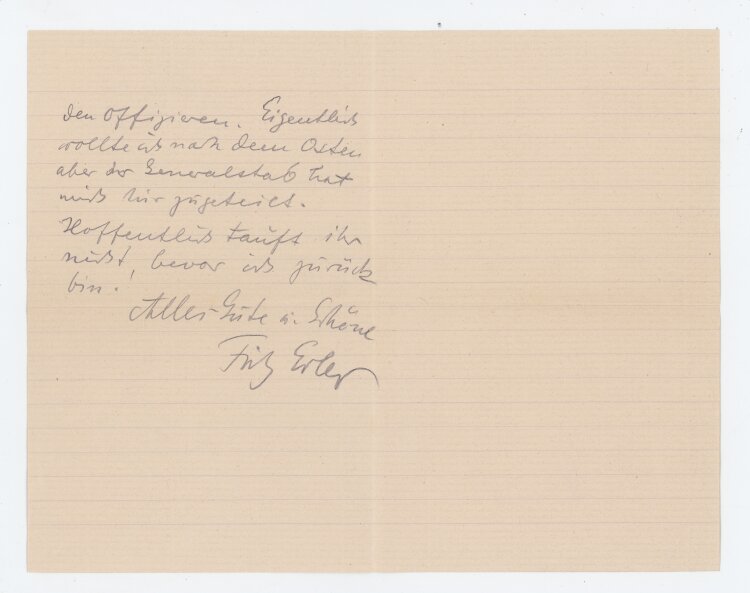 den Offizieren. Eigentlich
wollte ich nach dem Osten
aber der Generalstab hat
mich hier zugeteilt.
Hoffentlich tauft ihr
nicht, bevor ich zurück
bin.
Alles Gute u. Schöne
Fritz Erler